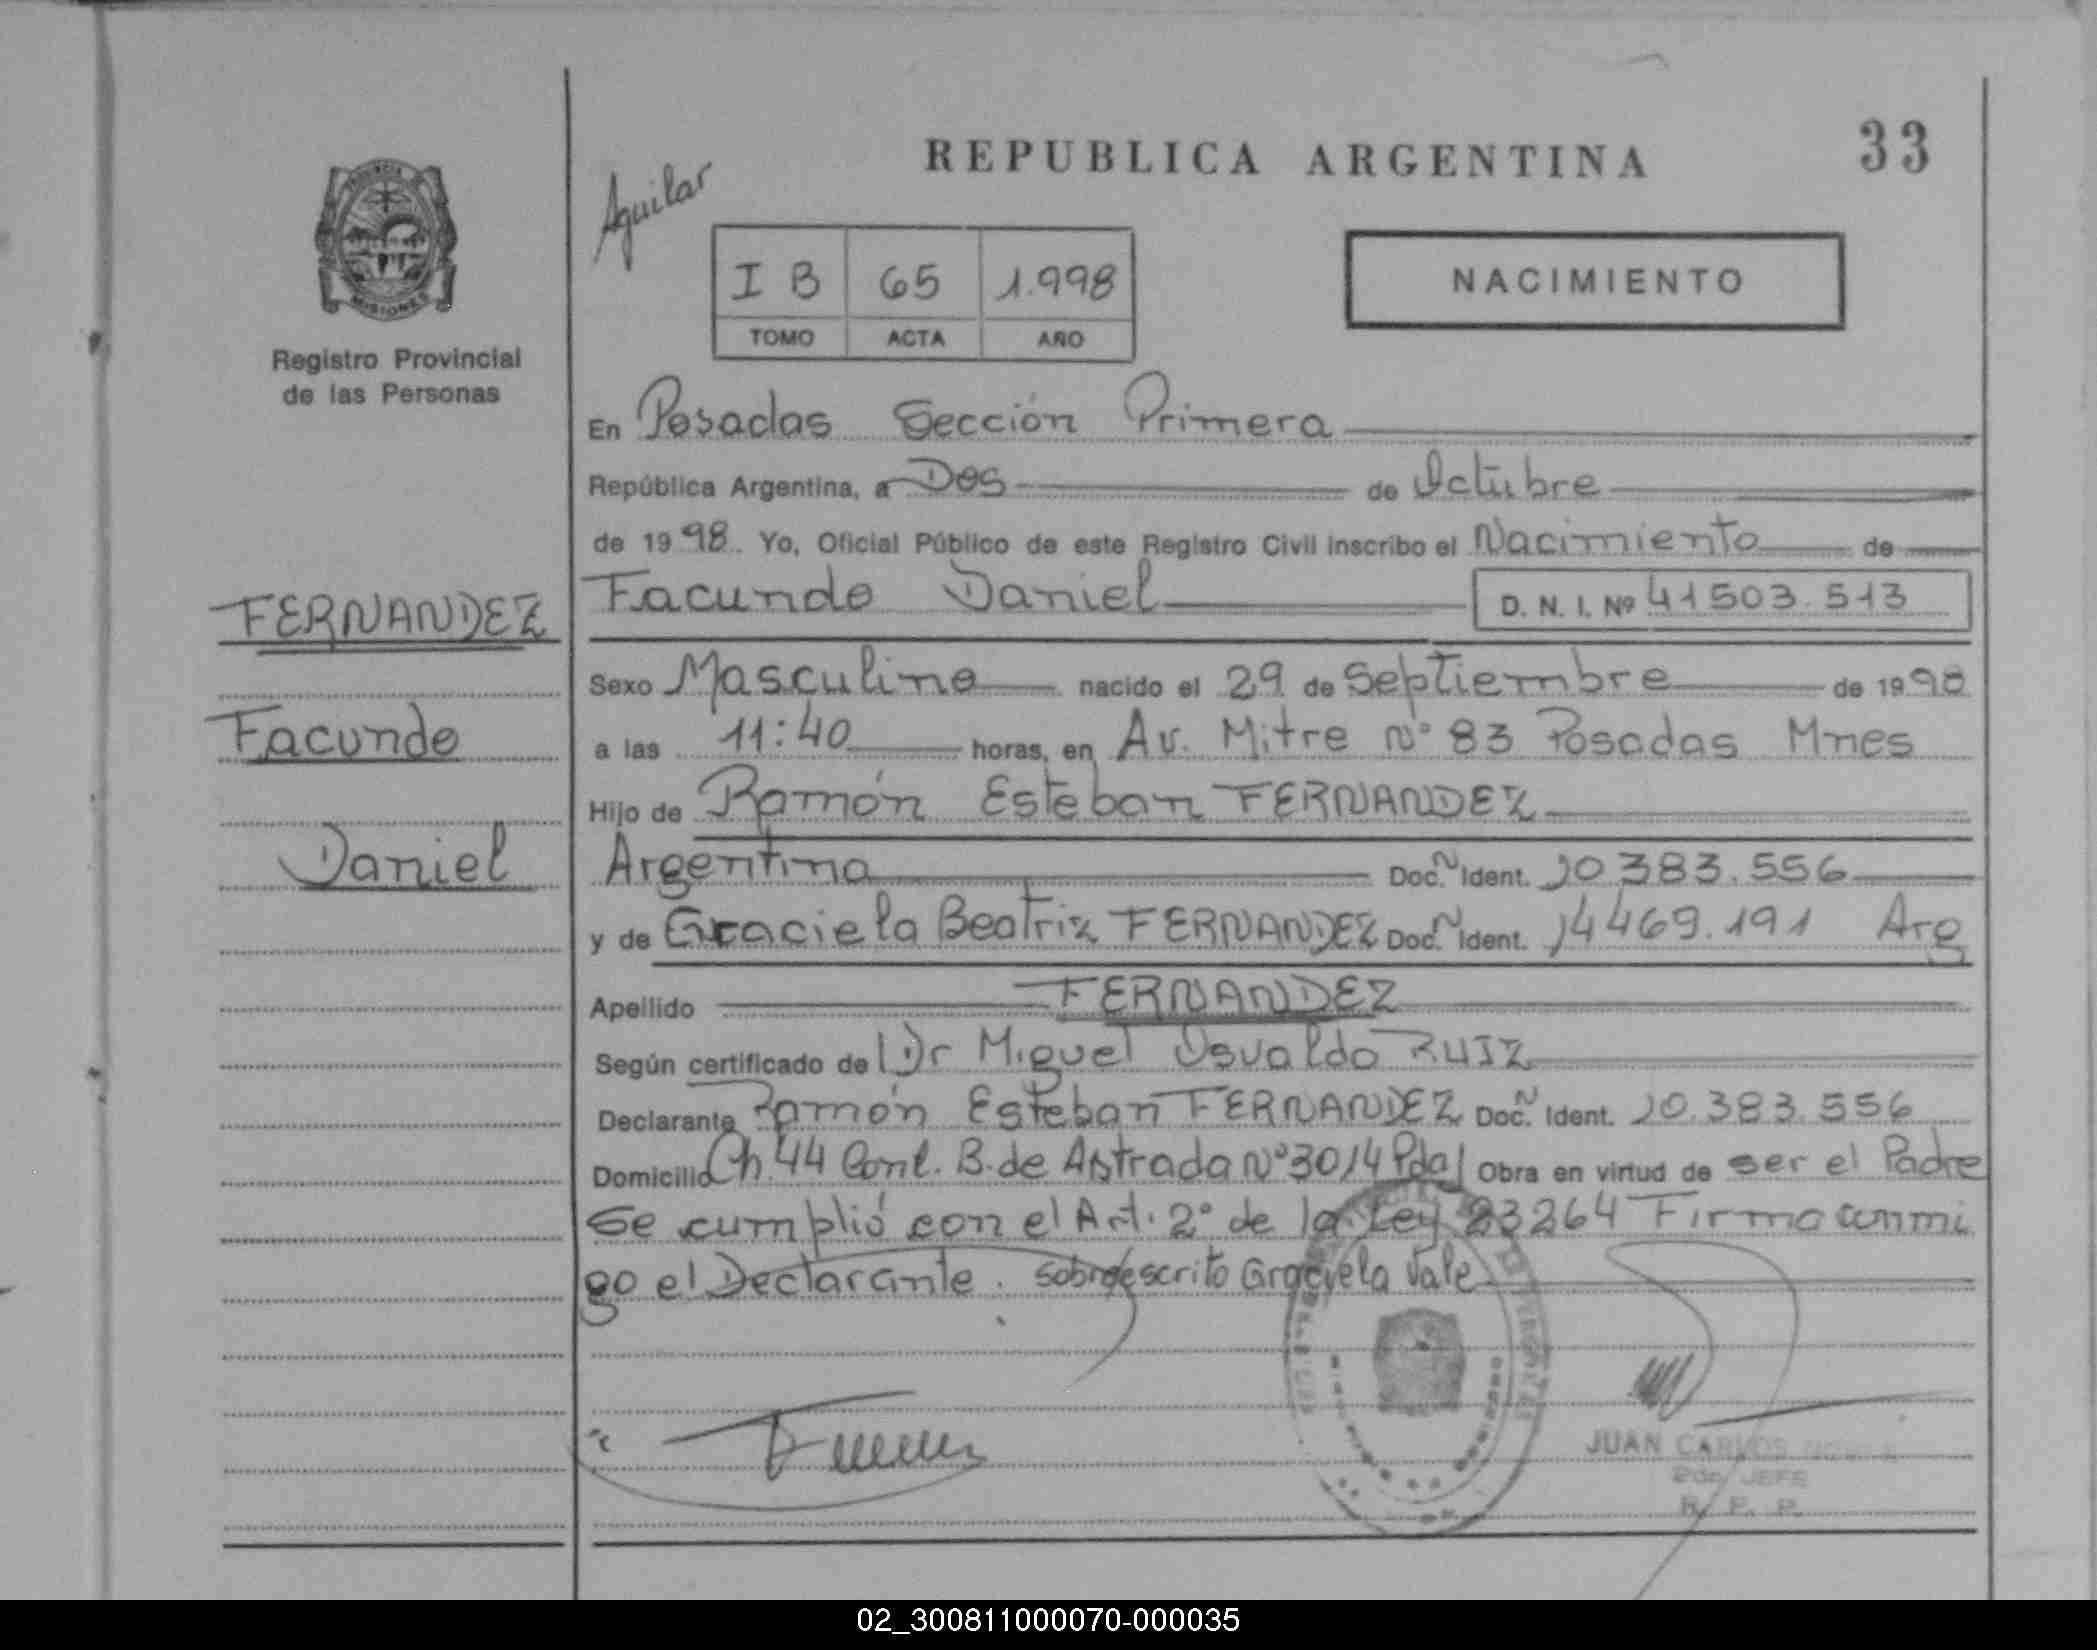 REPUBLICA ARGENTINA
33
Aguilar
I B 65 1.998
TOMO ACTA AÑO
NACIMIENTO
Registro Provincial
de las Personas
En Posadas Sección Primera
República Argentina, a Dos de Octubre
de 1998. Yo, Oficial Público de este Registro Civil inscribo el Nacimiento de
FERNANDEZ
Facundo Daniel D. N. I. Nº 41503.513
Sexo Masculino nacido el 29 de Septiembre de 1998
Facundo
a las 11:40 horas, en Av. Mitre Nº 83 Posadas Mnes
Hijo de Ramón Esteban FERNANDEZ
Daniel
Argentina Doc. N Ident. 10.383.556
y de Graciela Beatriz FERNANDEZ Doc. N Ident. 14469.191 Arg
Apellido FERNANDEZ
Según certificado de Dr Miguel Osvaldo RUIZ
Declarante Ramón Esteban FERNANDEZ Doc. N Ident. 10.383.556
Domicilio Ch. 44 B. de Astrada Nº 3014 Pdas Obra en virtud de ser el Padre
Se cumplió con el Art. 2º de la Ley 23264 Firma conmi
go el Declarante. Sobreescrito Graciela Vale
JUAN CARLOS
2do JEFE
R. P. P.
02_300811000070-000035